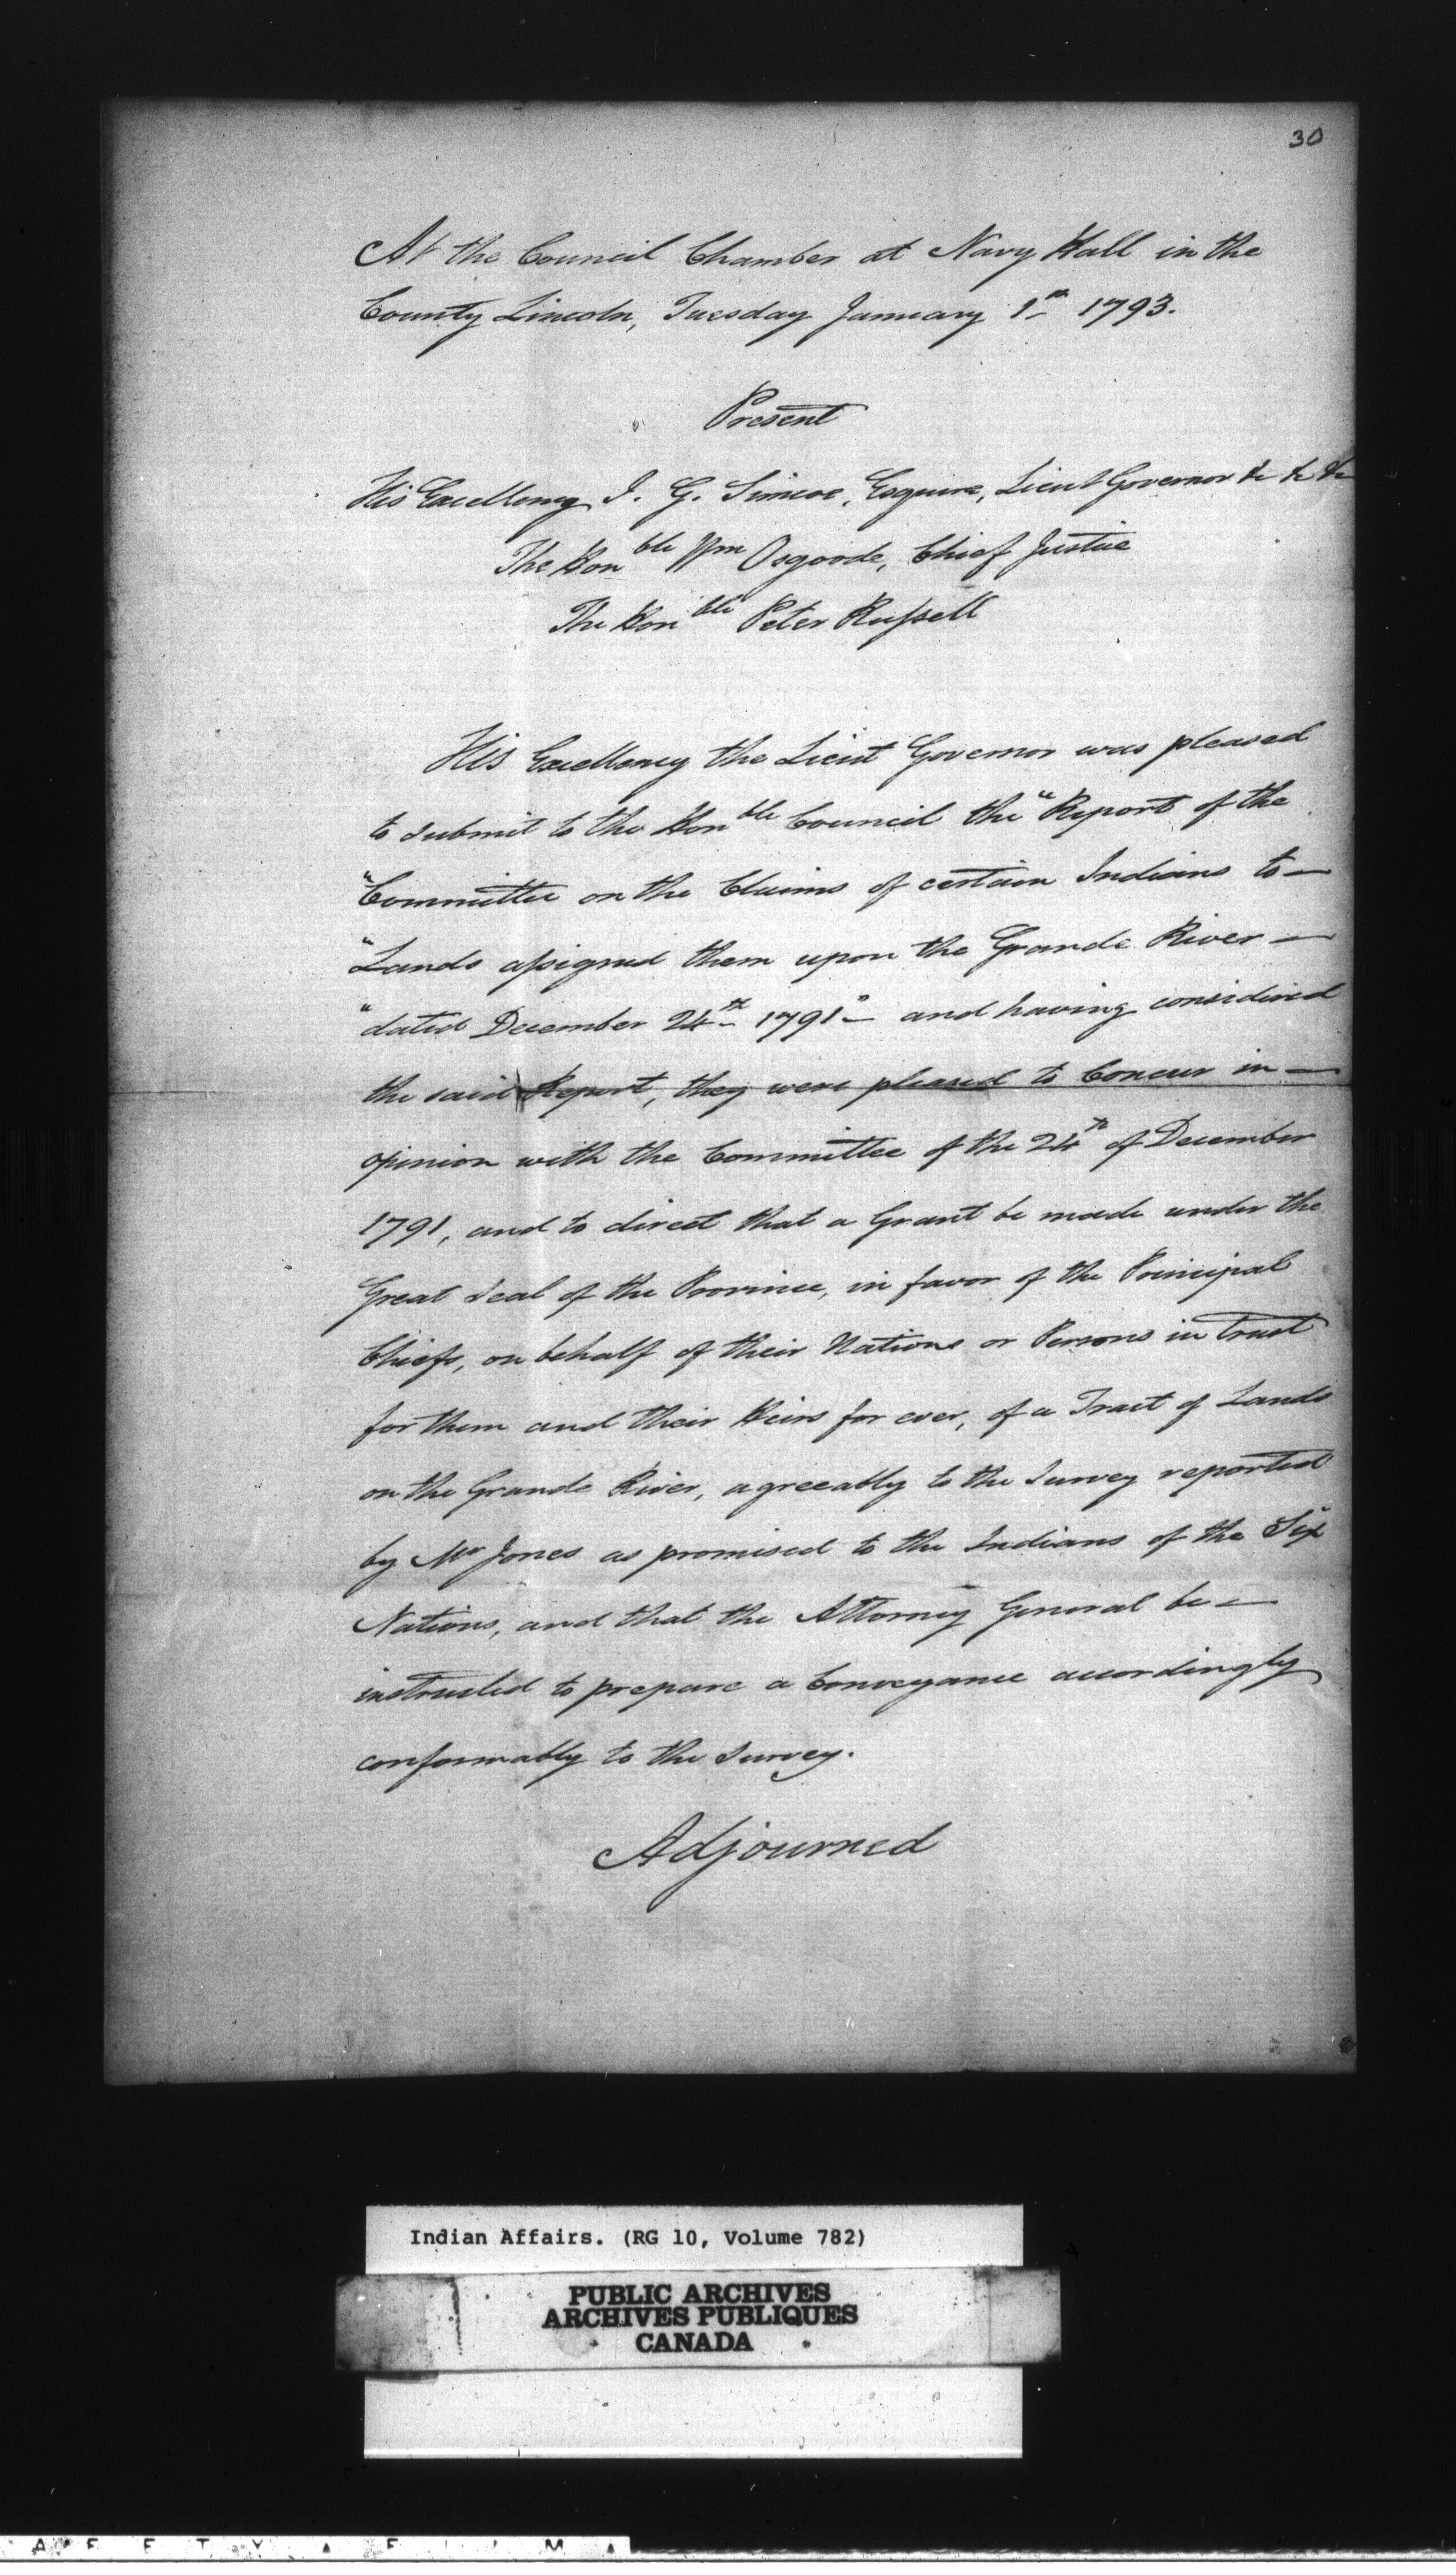 30
At the Council Chamber at Navy Hall in the
County Lincoln, Tuesday January 1st 1793.
Present
His Excellency J. G. Simcoe, Esquire, Lieut Governor &c &c &c
The Honble Wm Osgoode, Chief Justice
The Honble Peter Russell
His Excellency the Lieut Governor was pleased
to submit to the Honble Council the "Report of the
"Committee on the Claims of certain Indians to —
"Lands assigned them upon the Grande River —
"dated December 24th 1791" — and having considered
the said Report, they were pleased to Concur in —
opinion with the Committee of the 24th of December
1791, and to direct that a Grant be made under the
Great Seal of the Province, in favor of the Principal
Chiefs, on behalf of their Nations or Persons in Trust
for them and their Heirs for ever, of a Tract of Lands
on the Grande River, agreeably to the Survey reported
by Mr Jones as promised to the Indians of the Six
Nations, and that the Attorney General be —
instructed to prepare a Conveyance accordingly
conformably to the Survey.
Adjourned
Indian Affairs. (RG 10, Volume 782)
PUBLIC ARCHIVES
ARCHIVES PUBLIQUES
CANADA